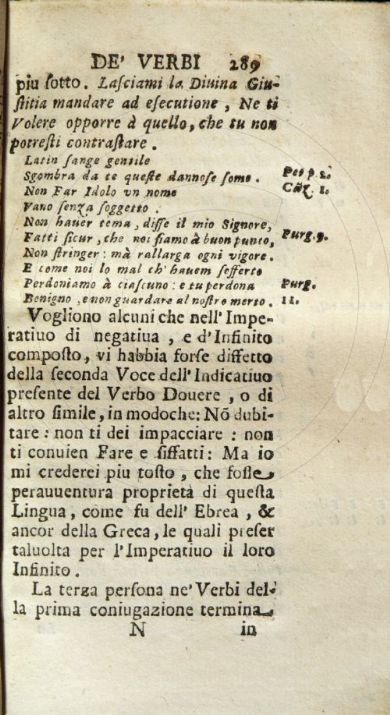 DE' VERBI 289
piu sotto. Lasciami la Divina Giu-
stitia mandare ad esecutione, Ne ti
Volere opporre à quello, che tu non
potresti contrastare.
Latin sange gentile
Sgombra da te queste dannose some. Pet p. 2.
Non Far Idolo vn nome Cāz. 1.
Vano senza soggetto.
Non hauer tema, disse il mio Signore,
Fatti sicur, che noi siamo à buon punto, Purg. 9.
Non stringer: mà rallarga ogni vigore.
E come noi lo mal ch' hauem sofferto
Perdoniamo à ciascuno: e tu perdona Purg.
Benigno, e non guardare al nostro merto. 11.
Vogliono alcuni che nell'Impe-
ratiuo di negatiua, e d'Infinito
composto, vi habbia forse diffetto
della seconda Voce dell'Indicatiuo
presente del Verbo Douere, o di
altro simile, in modoche: Nõ dubi-
tare: non ti dei impacciare: non
ti conuien Fare e siffatti: Ma io
mi crederei piu tosto, che fosse
perauuentura proprietà di questa
Lingua, come fu dell' Ebrea, &
ancor della Greca, le quali preser
taluolta per l'Imperatiuo il loro
Infinito.
La terza persona ne' Verbi del-
la prima coniugazione termina
N in